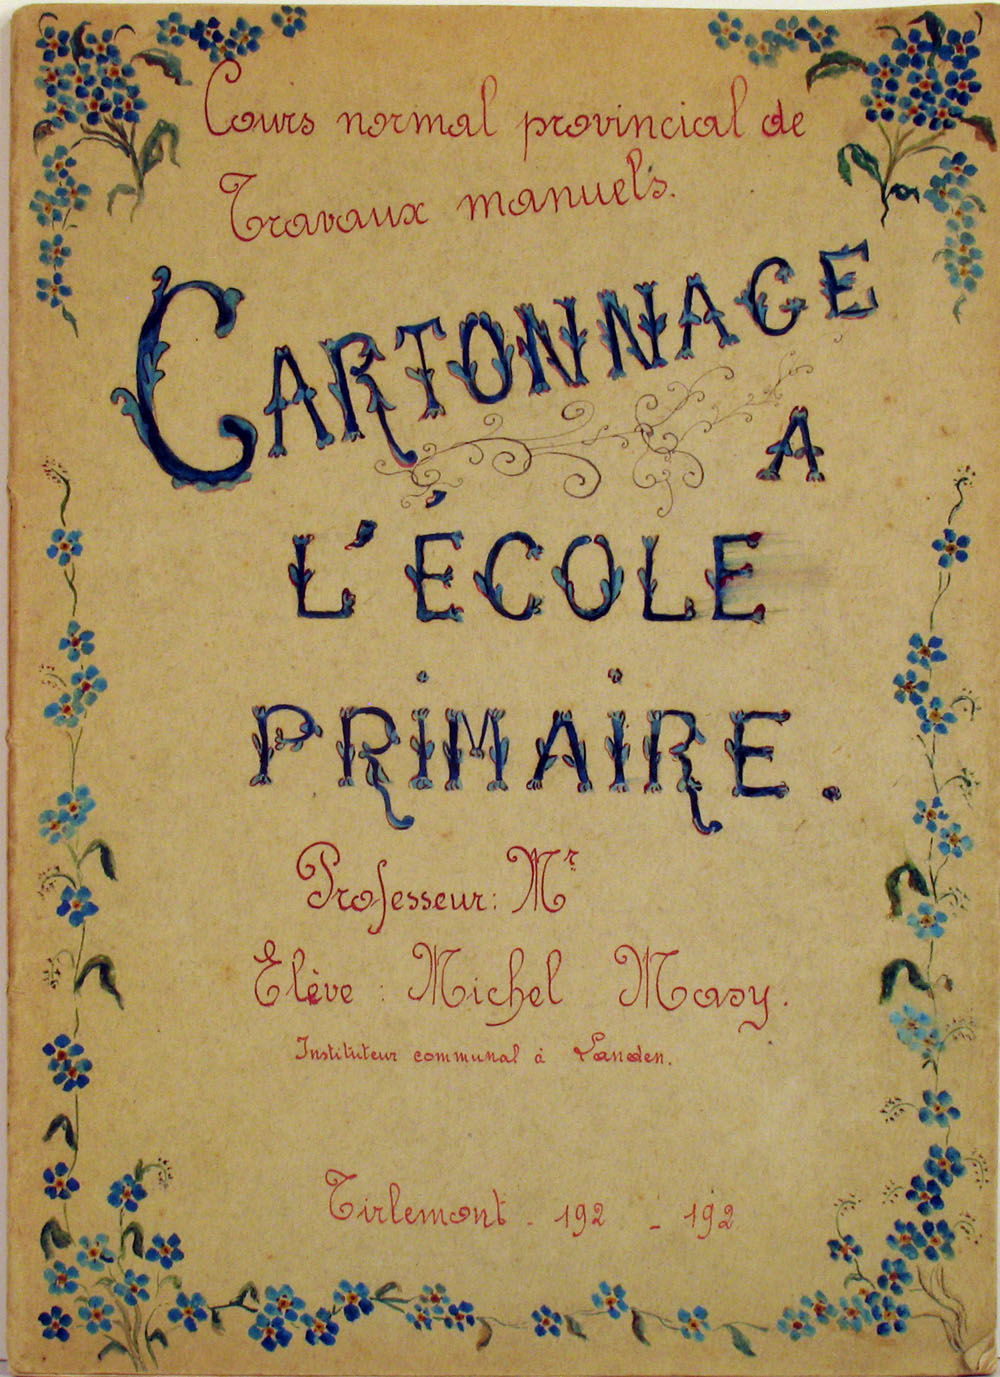 Cours normal provincial de
Travaux manuels.
CARTONNAGE
A
L'ÉCOLE
PRIMAIRE.
Professeur: Mr
Elève : Michel Masy.
Instituteur communal à Landen.
Tirlemont - 192 - 192